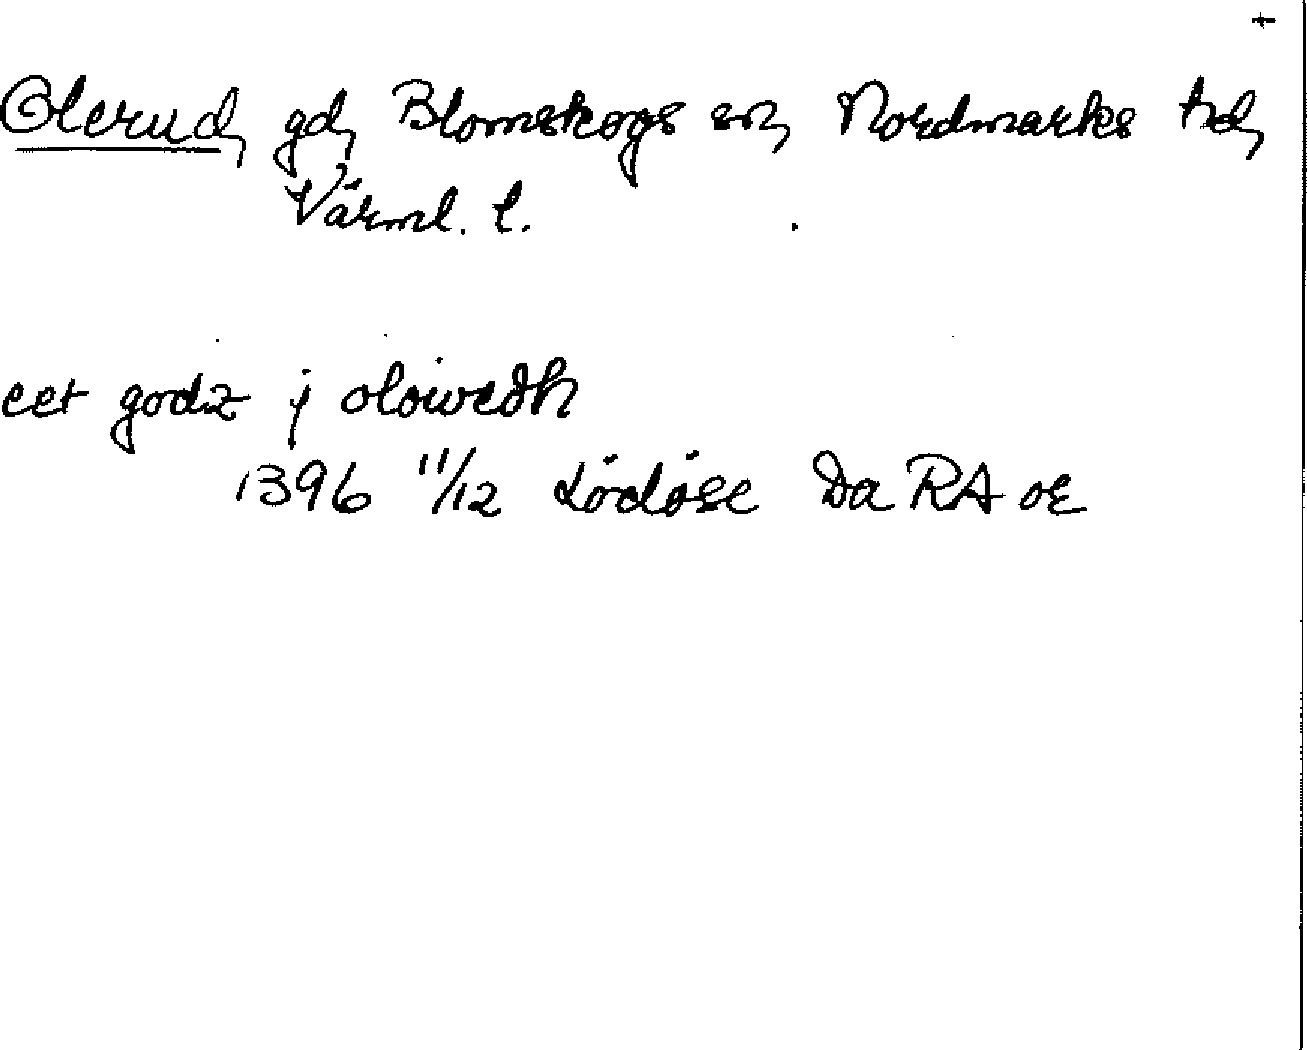 Olerud, gd, Blomskogs sn, Nordmarks hd,
Värml. l.
eet godz j olowedh
1396 11/12 Lödöse Da RA or